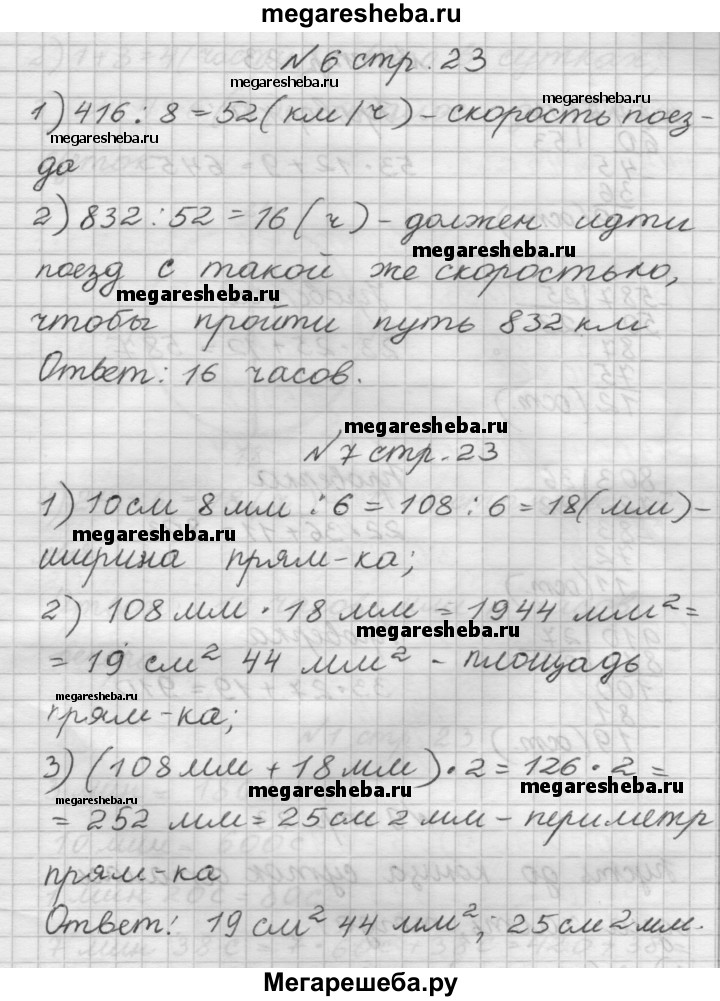 megaresheba.ru
N 6 стр. 23
megaresheba.ru
1) 416 : 8 = 52 (км/ч) - скорость поез-
megaresheba.ru
да
2) 832 : 52 = 16 (ч) - должен идти
megaresheba.ru
поезд с такой же скоростью,
megaresheba.ru
чтобы пройти путь 832 км
Ответ: 16 часов.
megaresheba.ru
N 7 стр. 23
1) 10 см 8 мм : 6 = 108 : 6 = 18 (мм) -
megaresheba.ru
ширина прям-ка;
2) 108 мм · 18 мм = 1944 мм² =
megaresheba.ru
= 19 см² 44 мм² - площадь
megaresheba.ru
прям-ка;
3) (108 мм + 18 мм) · 2 = 126 · 2 =
megaresheba.ru megaresheba.ru megaresheba.ru
= 252 мм = 25 см 2 мм - периметр
прям-ка
Ответ: 19 см² 44 мм²; 25 см 2 мм.
megaresheba.ru
Мегарешеба.ру